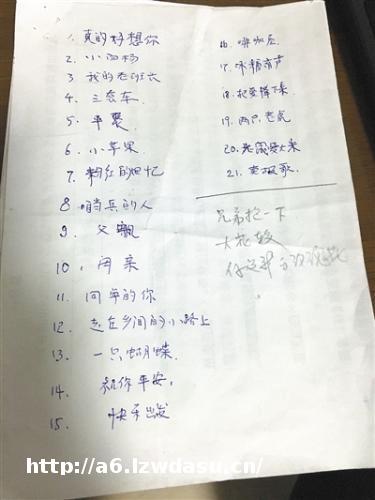 1. 真的好想你
2. 小白杨
3. 我的老班长
4. 三套车
5. 平凡
6. 小苹果
7. 粉红的回忆
8. 咱当兵的人
9. 父亲
10. 母亲
11. 同桌的你
12. 走在乡间的小路上
13. 一只蝴蝶
14. 祝你平安
15. 快乐出发
16. 咖
17. 有声
18. 把
19. 两只老虎
20. 老鼠爱大米
21. 歌
兄弟抱一下
大花轿
你是我的玫瑰花
http://a6.lzwdasu.cn/